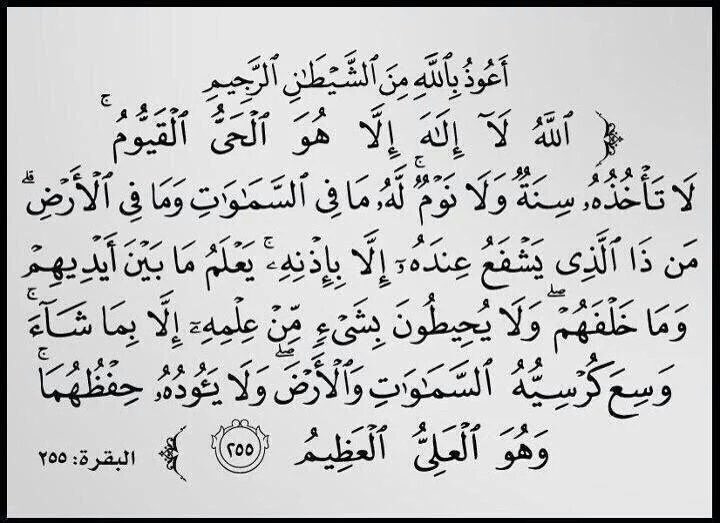 أَعُوذُ بِٱللَّهِ مِنَ ٱلشَّيْطَٰنِ ٱلرَّجِيمِ
﴿ ٱللَّهُ لَآ إِلَٰهَ إِلَّا هُوَ ٱلْحَىُّ ٱلْقَيُّومُ ۚ
لَا تَأْخُذُهُۥ سِنَةٌ وَلَا نَوْمٌ ۚ لَّهُۥ مَا فِى ٱلسَّمَٰوَٰتِ وَمَا فِى ٱلْأَرْضِ ۗ
مَن ذَا ٱلَّذِى يَشْفَعُ عِندَهُۥٓ إِلَّا بِإِذْنِهِۦ ۚ يَعْلَمُ مَا بَيْنَ أَيْدِيهِمْ
وَمَا خَلْفَهُمْ ۖ وَلَا يُحِيطُونَ بِشَىْءٍ مِّنْ عِلْمِهِۦٓ إِلَّا بِمَا شَآءَ ۚ
وَسِعَ كُرْسِيُّهُ ٱلسَّمَٰوَٰتِ وَٱلْأَرْضَ ۖ وَلَا يَـُٔودُهُۥ حِفْظُهُمَا ۚ
وَهُوَ ٱلْعَلِىُّ ٱلْعَظِيمُ ٢٥٥ ﴾ البقرة: ٢٥٥